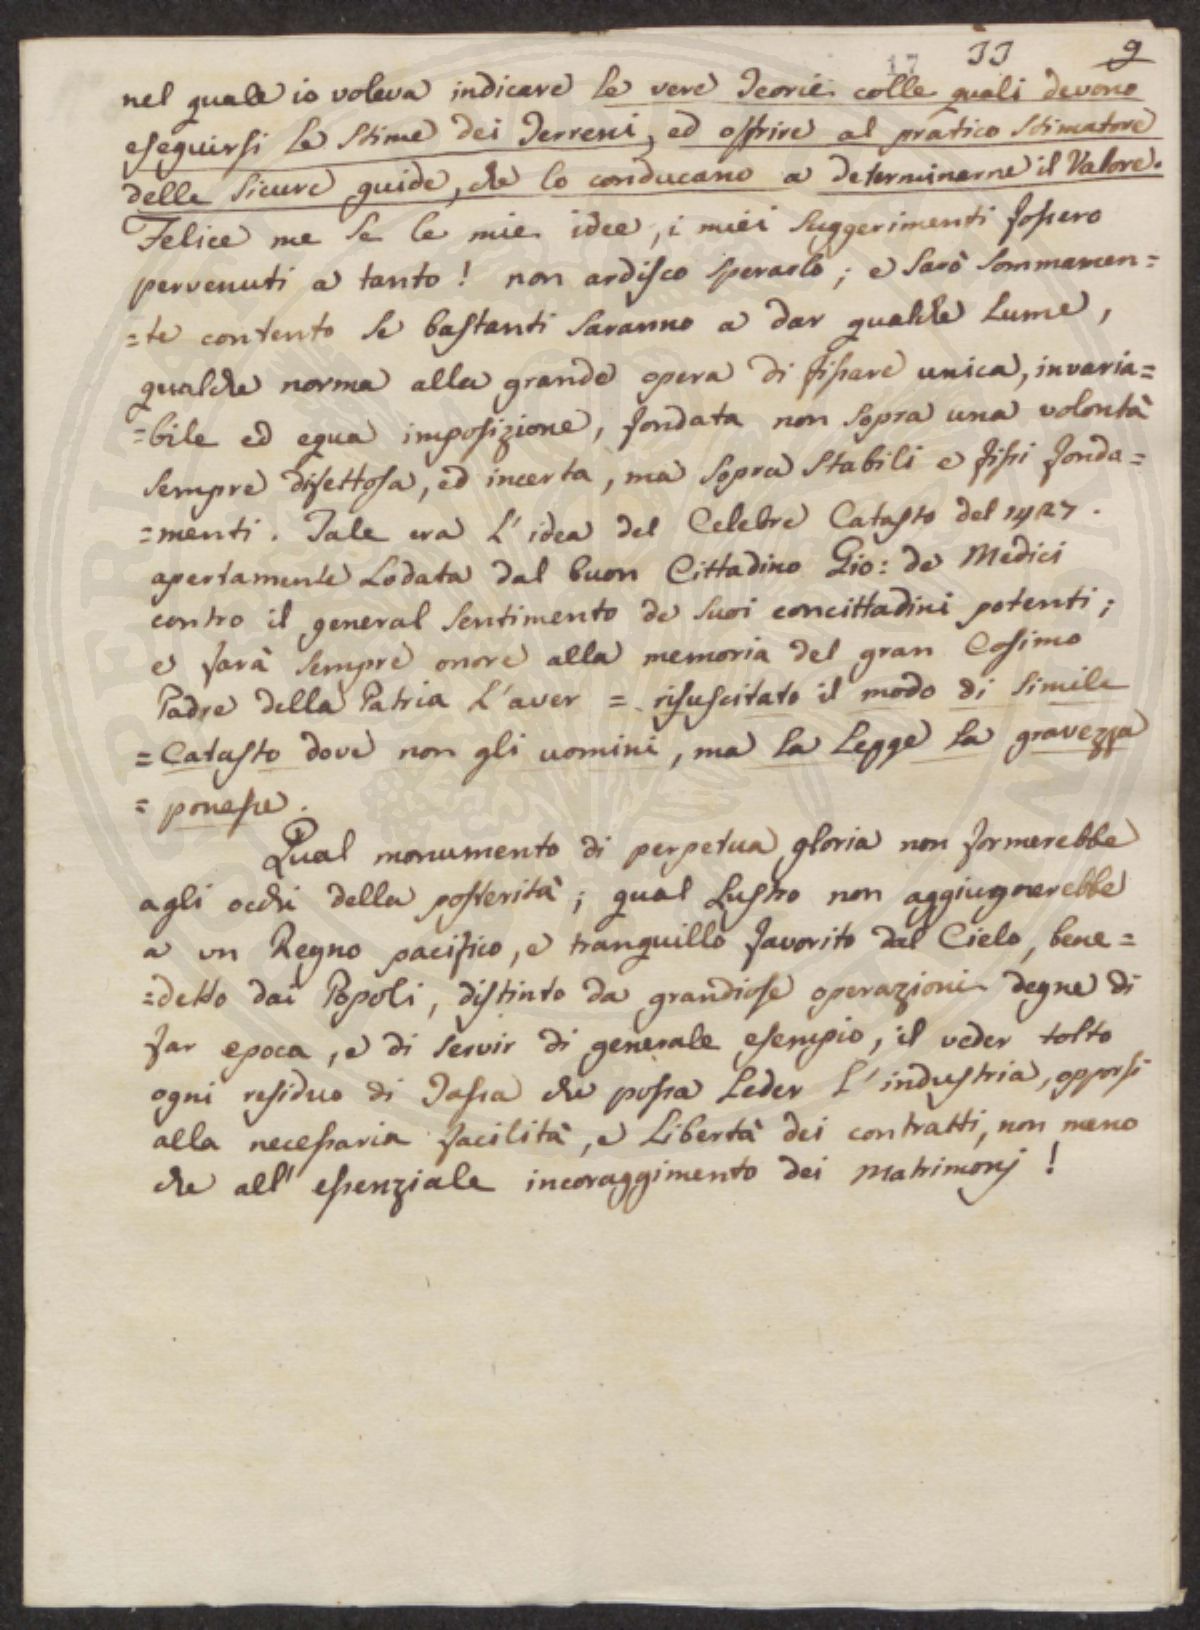 17 33 9
nel quale io voleva indicare le vere Teorie colle quali devono
eseguirsi le Stime dei Terreni, ed offrire al pratico Stimatore
delle sicure guide, che lo conducano a determinarne il Valore.
Felice me se le mie idee, i miei suggerimenti fossero
pervenuti a tanto! non ardisco sperarlo; e sarò sommamen=
=te contento se bastanti saranno a dar qualche lume,
qualche norma alla grande opera di fissare unica, invaria=
=bile ed equa imposizione, fondata non sopra una volontà
sempre difettosa, ed incerta, ma sopra stabili e fissi fonda=
=menti. Tale era l'idea del Celebre Catasto del 1427.
apertamente lodata dal buon Cittadino Gio: de Medici
contro il general sentimento de suoi concittadini potenti;
e farà sempre onore alla memoria del gran Cosimo
Padre della Patria l'aver = risuscitato il modo di simile
= Catasto dove non gli uomini, ma la Legge la gravezza
= ponesse.
Qual monumento di perpetua gloria non formerebbe
agli occhi della posterità; qual lustro non aggiugnerebbe
a un Regno pacifico, e tranquillo favorito dal Cielo, bene=
=detto dai Popoli, distinto da grandiose operazioni degne di
far epoca, e di servir di generale esempio, il veder tolto
ogni residuo di Tassa che possa leder l'industria, opporsi
alla necessaria facilità, e libertà dei contratti, non meno
che all'essenziale incoraggimento dei Matrimonj!